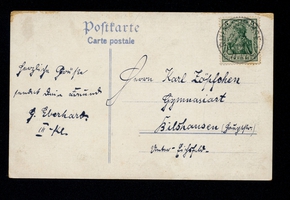 Postkarte
Carte postale
Herzliche Grüße
sendet Dein Freund
G. Eberhard
III-Kl.
Herrn Karl Zöpfchen
Gymnasiast
Bilshausen
Unter-Eichsfeld.